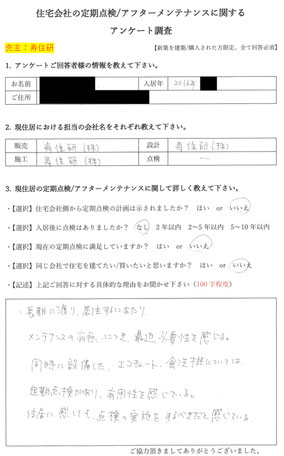 住宅会社の定期点検/アフターメンテナンスに関する
アンケート調査
売主：寿住研
【新築を建築/購入された方限定、全て回答必須】
1. アンケートご回答者様の情報を教えて下さい。
お名前 入居年 2016年
ご住所
2. 現住居における担当の会社名をそれぞれ教えて下さい。
販売 寿住研(株) 設計 寿住研(株)
施工 寿住研(株) 点検 ―
3. 現住居の定期点検/アフターメンテナンスに関して詳しく教えて下さい。
・【選択】住宅会社側から定期点検の計画は示されましたか？ はい or いいえ
・【選択】入居後に点検はありましたか？ なし 2年以内 2~5年以内 5~10年以内
・【選択】現在の定期点検に満足していますか？ はい or いいえ
・【選択】同じ会社で住宅を建てたい/買いたいと思いますか？ はい or いいえ
・【記述】上記ご回答に対する具体的な理由をお聞かせ下さい（100字程度）
・長期に渡り、居住するにあたり、
メンテナンスの有無につき、最近、必要性を感じる。
同時に設備した、エコキュート、食洗機については、
定期点検があり、有用性を感じている。
住居に関しても、点検の実施をするべきだと感じている。
ご協力頂きましてありがとうございました。